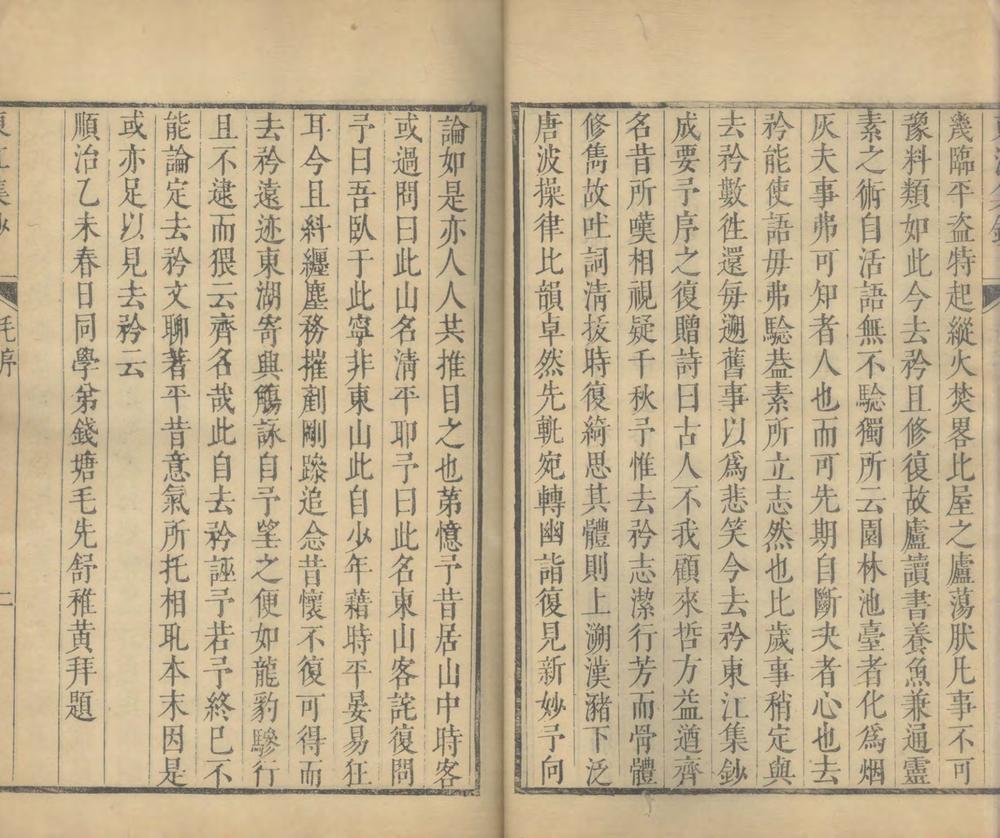 幾臨平盜特起縱火焚畧比屋之廬蕩肰凡事不可
豫料類如此今去矜且修復故廬讀書養魚兼通靈
素之術自活語無不騐獨所云園林池臺者化爲烟
灰夫事弗可知者人也而可先期自斷夬者心也去
矜能使語毋弗騐葢素所立志然也比歲事稍定與
去矜數徃還每遡舊事以爲悲笑今去矜東江集鈔
成要予序之復贈詩曰古人不我顧來哲方益遒齊
名昔所嘆相視疑千秋予惟去矜志潔行芳而骨體
修雋故吐詞淸拔時復綺思其體則上溯漢瀦下泛
唐波操律比韻卓然先軌宛轉幽詣復見新妙予向
論如是亦人人共推目之也第憶予昔居山中時客
或過問曰此山名淸平耶予曰此名東山客詫復問
予曰吾臥于此寧非東山此自少年藉時平晏易狂
耳今且糾纏塵務摧剷剛躁追念昔懷不復可得而
去矜遠迹東湖寄興觴詠自予望之便如龍豹驂行
且不逮而猥云齊名哉此自去矜誣予若予終已不
能論定去矜文聊著平昔意氣所托相耴本末因是
或亦足以見去矜云
順治乙未春日同學弟錢塘毛先舒稚黃拜題
東江集鈔
毛序
二